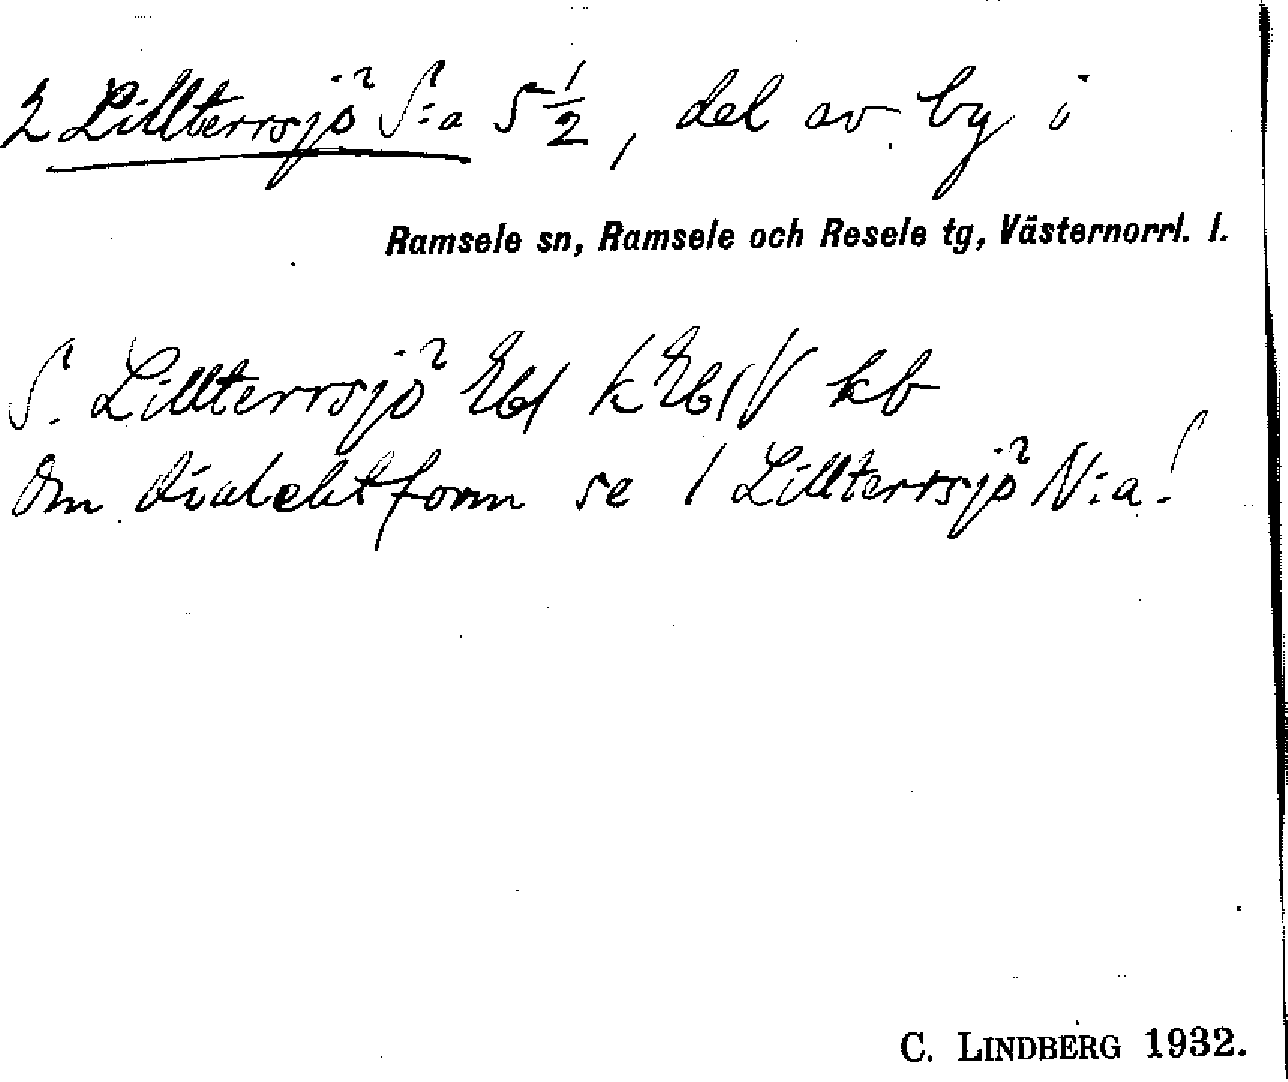 2 Lillterrsjö S:a 5 1/2, del av by i
Ramsele sn, Ramsele och Resele tg, Västernorrl. l.
S. Lillterrsjö Ebl k EblV kb
Om dialektform se 1 Lillterrsjö N:a!
C. LINDBERG 1932.